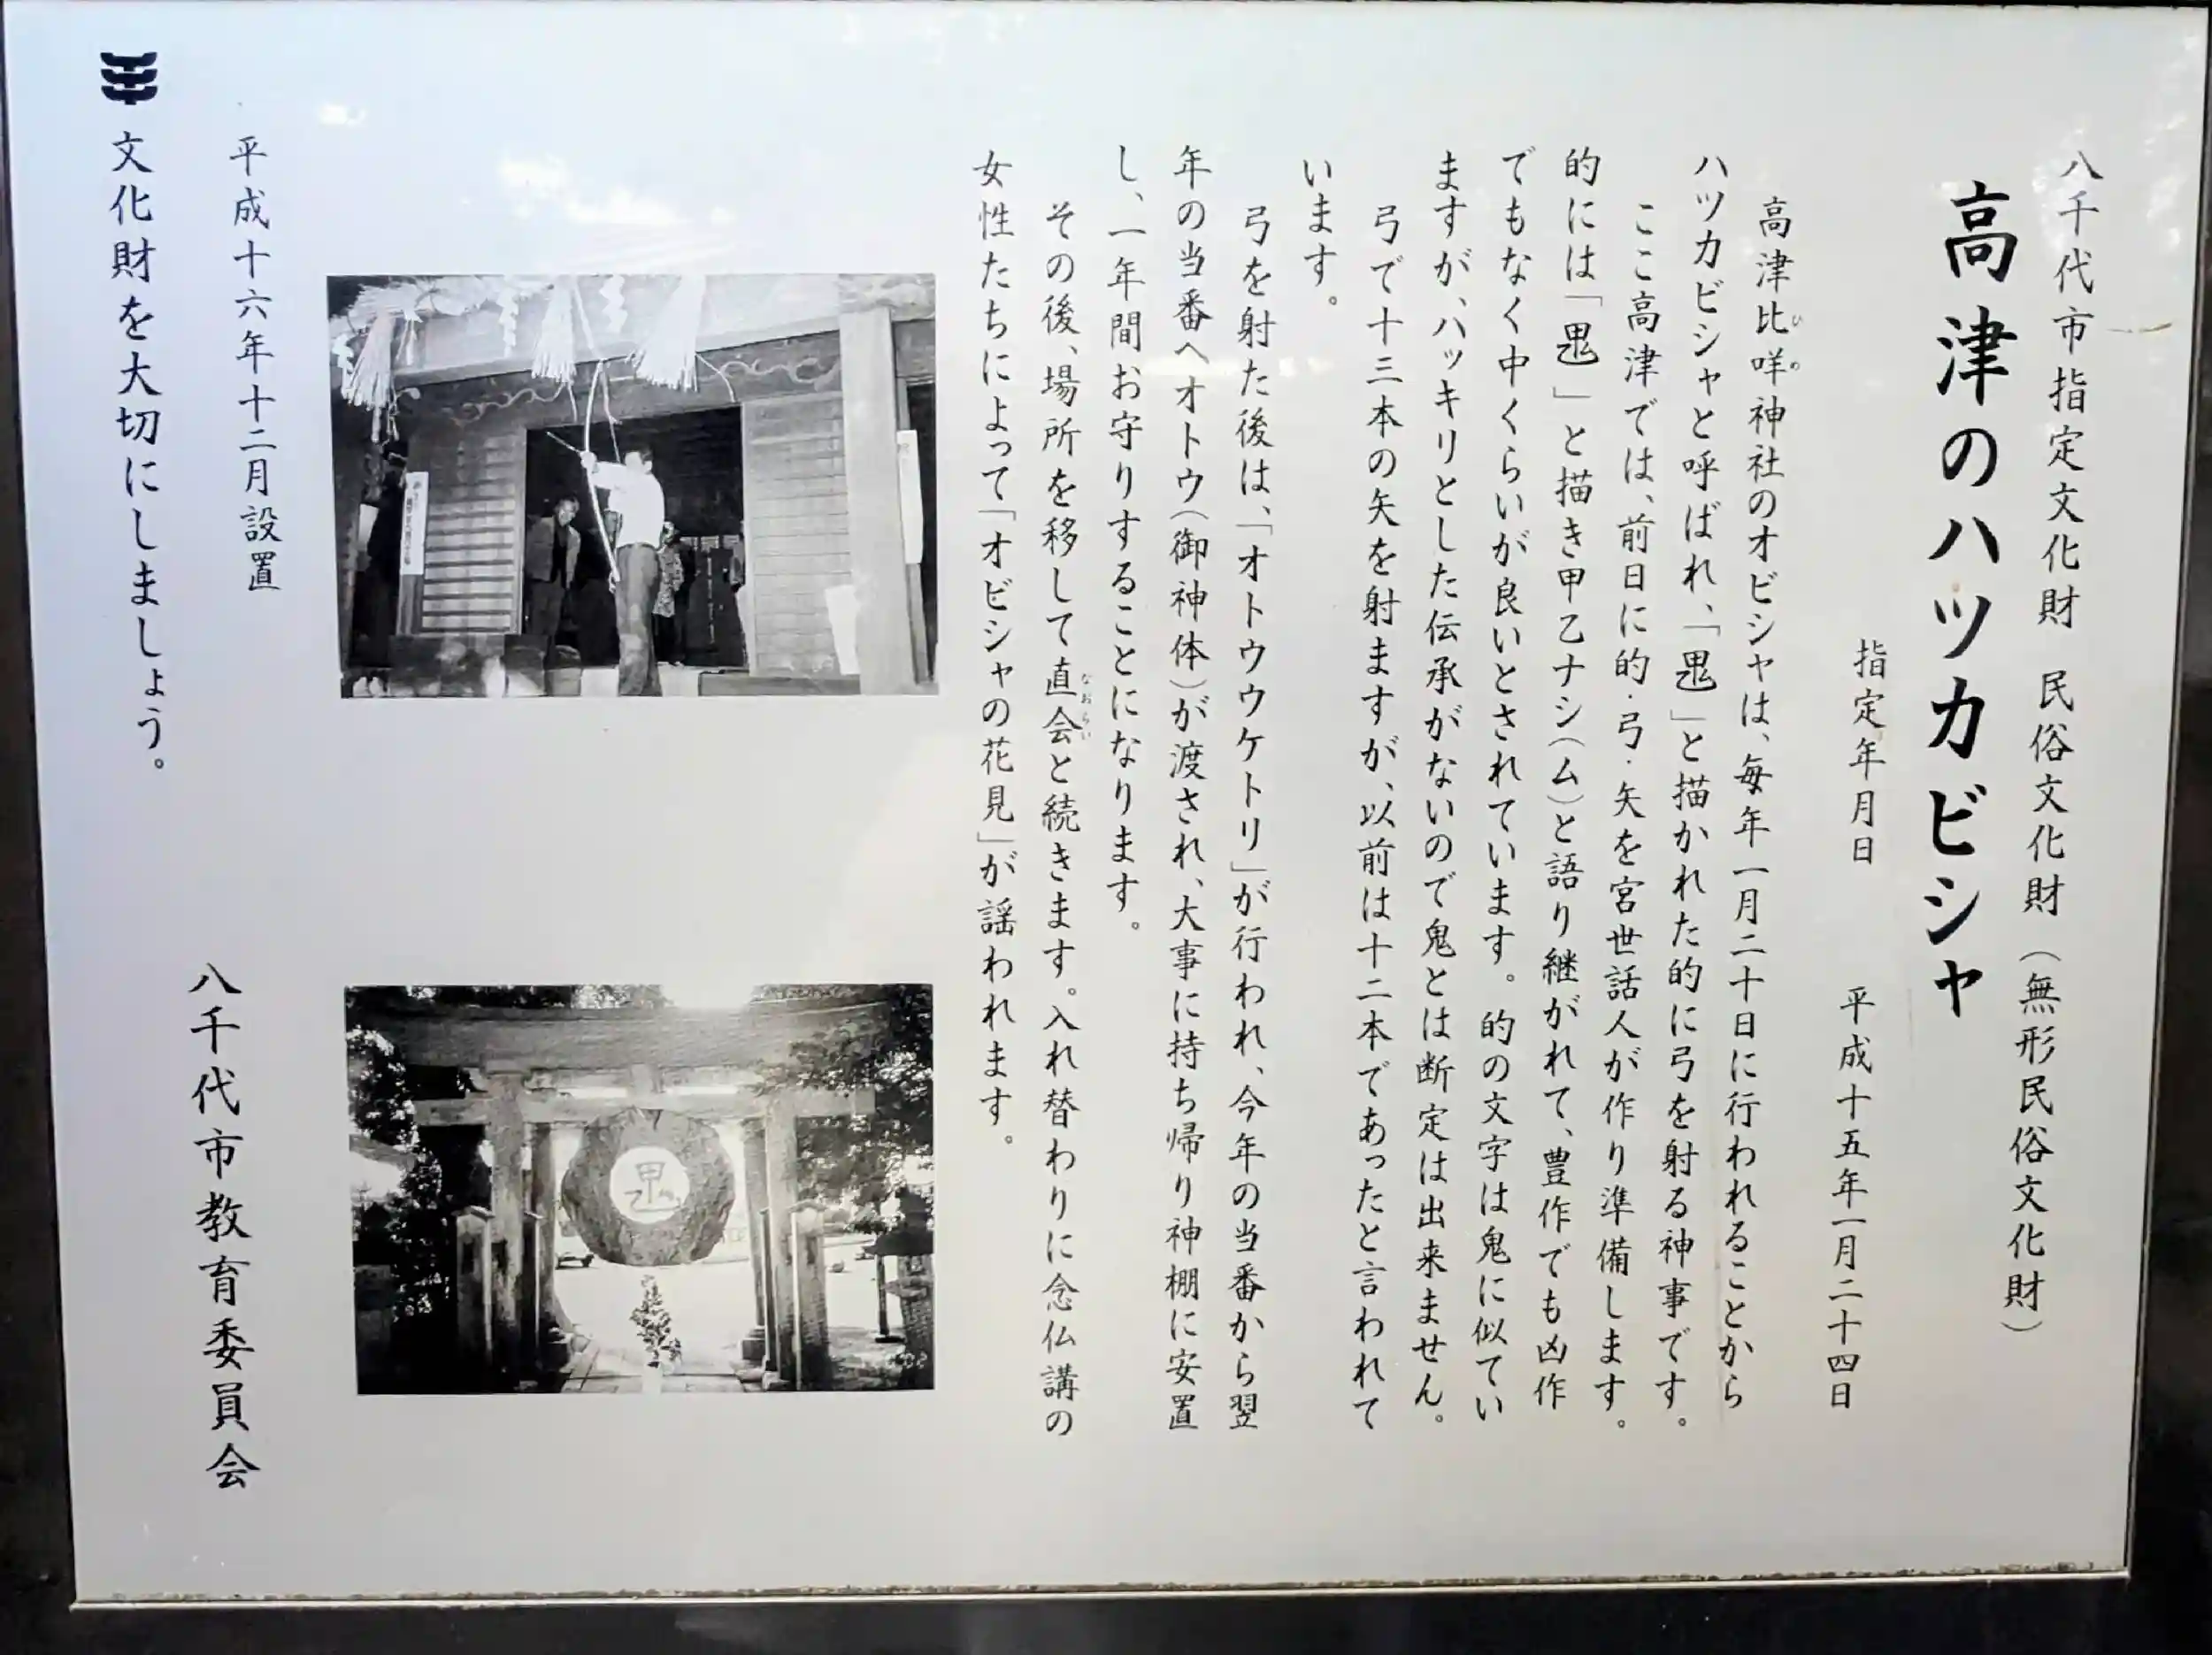 八千代市指定文化財 民俗文化財（無形民俗文化財）
高津のハツカビシャ
指定年月日 平成十五年一月二十四日
高津比咩神社のオビシャは、毎年一月二十日に行われることから
ハツカビシャと呼ばれ、「」と描かれた的に弓を射る神事です。
ここ高津では、前日に的・弓・矢を宮世話人が作り準備します。
的には「」と描き甲乙ナシ（ム）と語り継がれて、豊作でも凶作
でもなく中くらいが良いとされています。的の文字は鬼に似てい
ますが、ハッキリとした伝承がないので鬼とは断定は出来ません。
弓で十三本の矢を射ますが、以前は十二本であったと言われて
います。
弓を射た後は、「オトウウケトリ」が行われ、今年の当番から翌
年の当番へオトウ（御神体）が渡され、大事に持ち帰り神棚に安置
し、一年間お守りすることになります。
その後、場所を移して直会と続きます。入れ替わりに念仏講の
女性たちによって「オビシャの花見」が謡われます。
ひめ
なおらい
甲乙ム
平成十六年十二月設置
八千代市教育委員会
文化財を大切にしましょう。